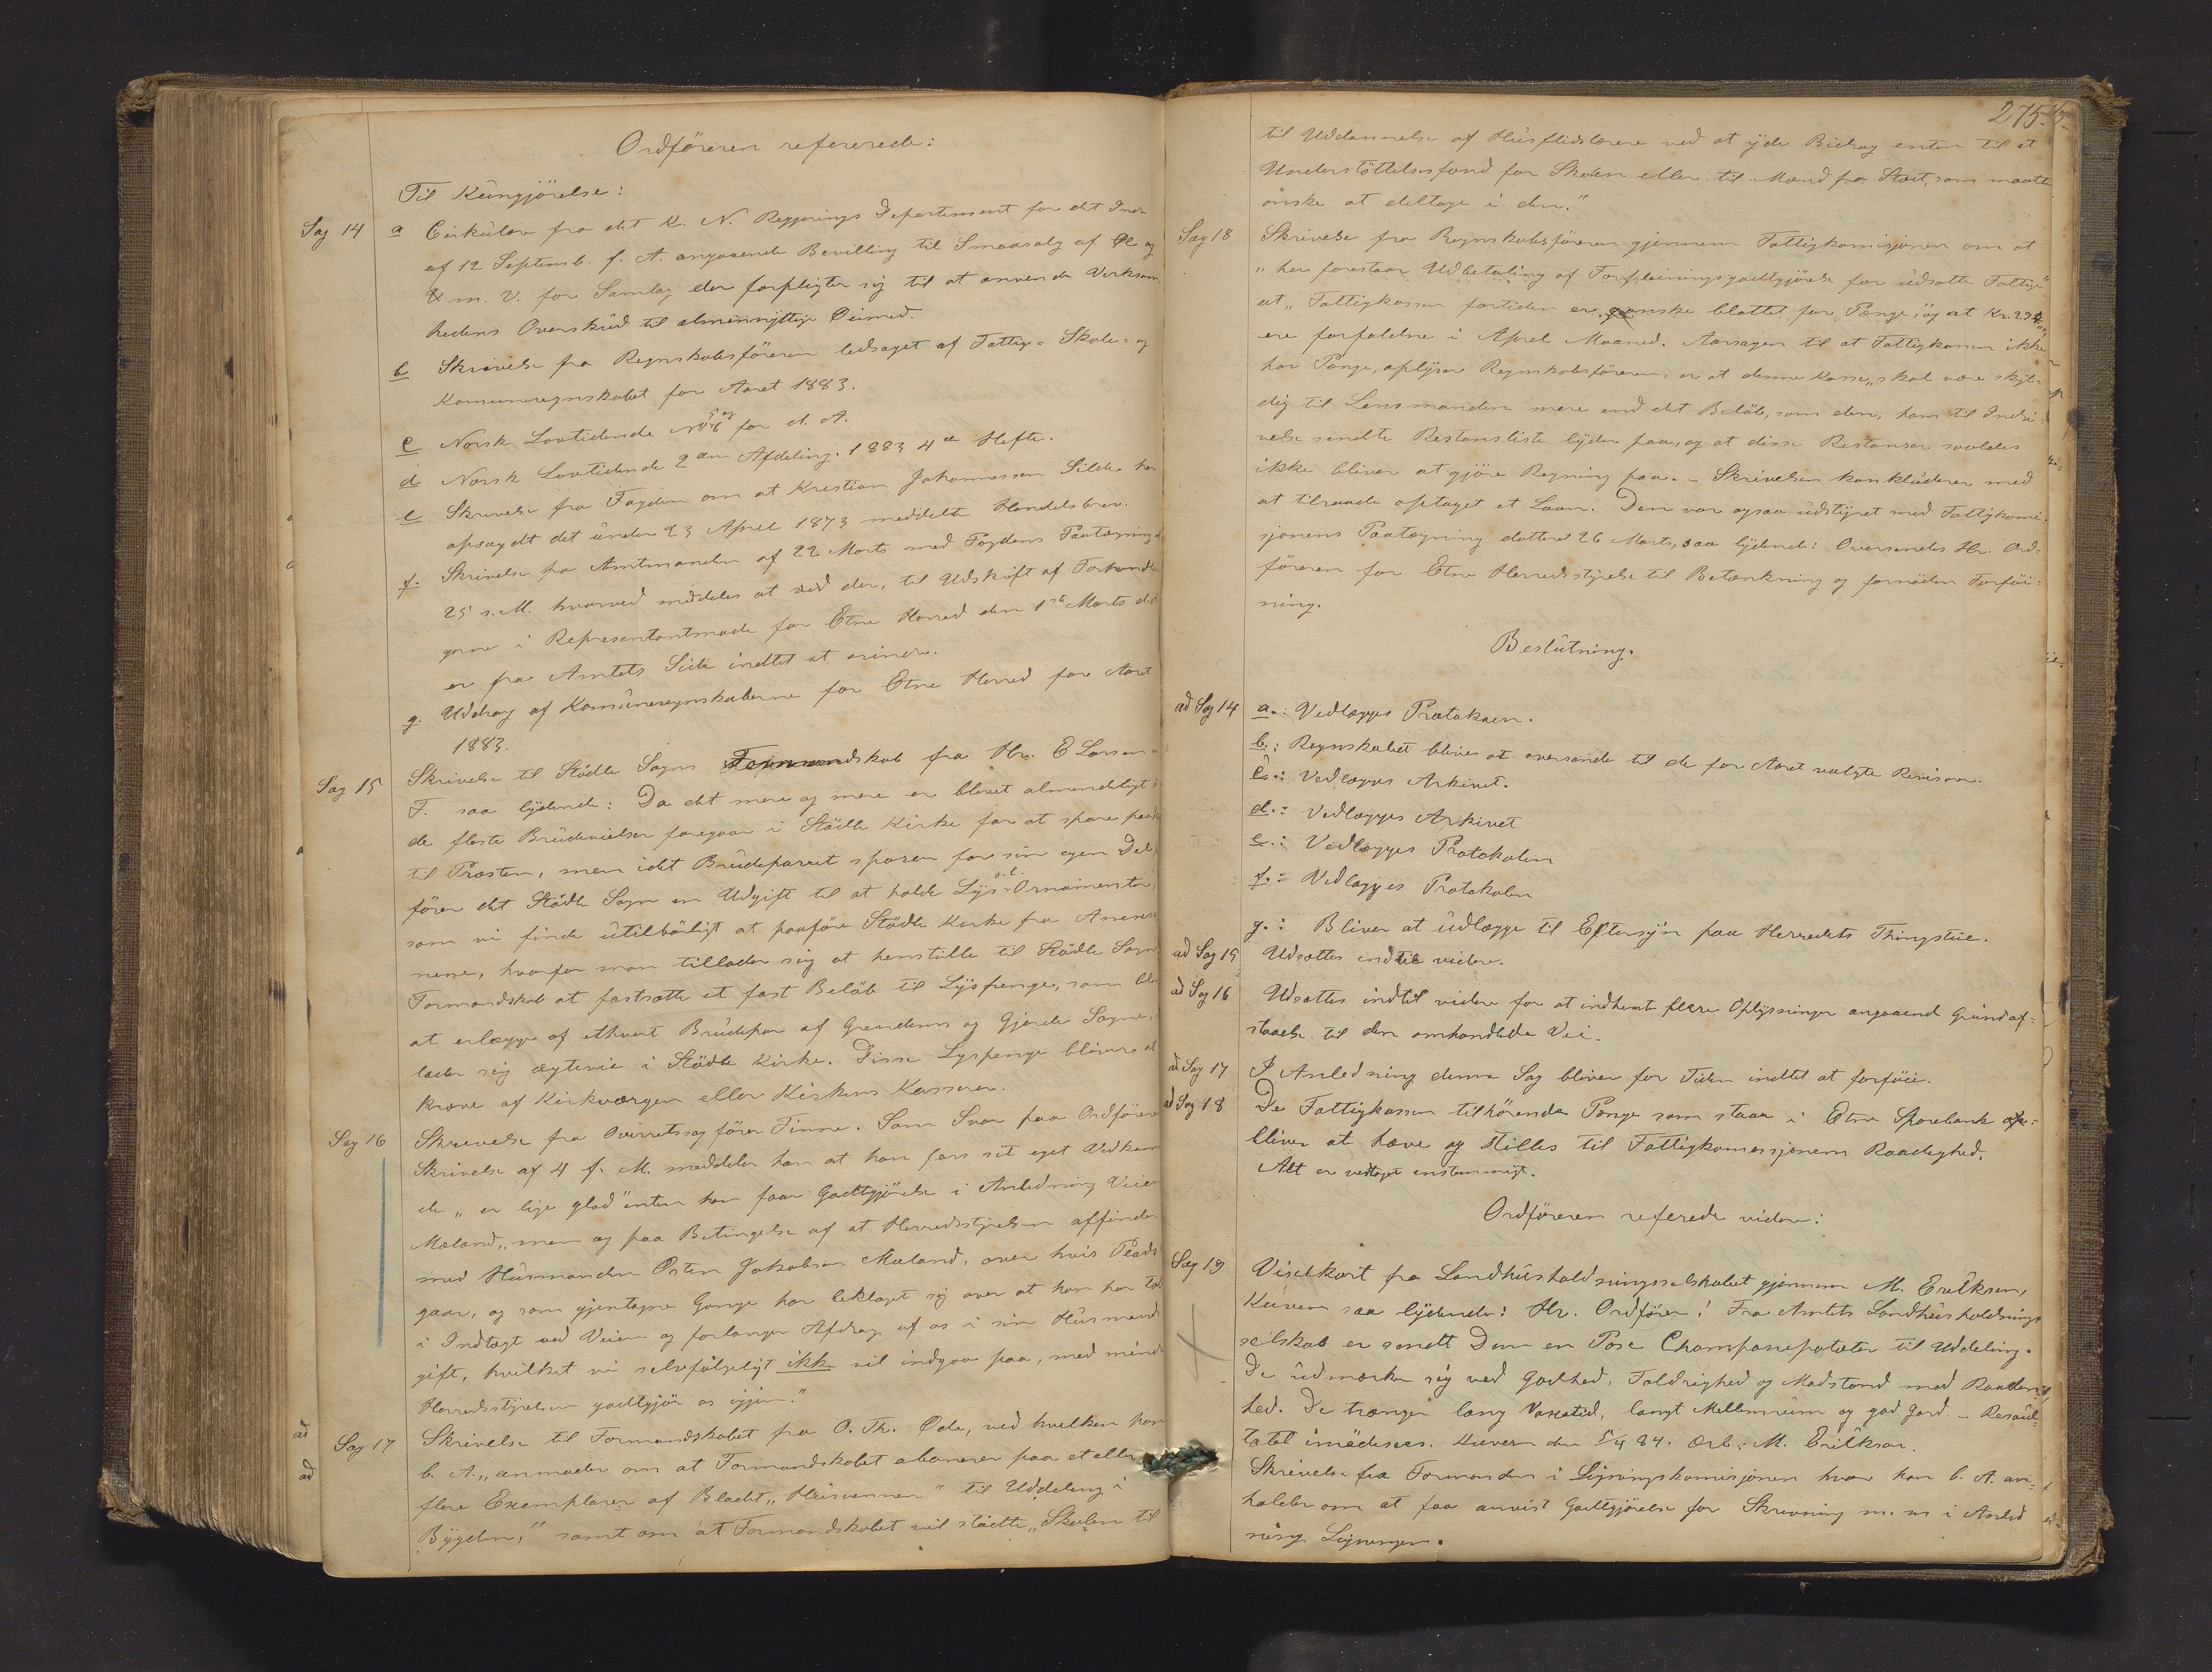 Ordföreren refererede:
Til Kungjörelse:
Sag 14 a Cirkulær fra det K. N. Regjerings Departement for det Indr
af 12 Septemb. f. A. angaaende Bevilling til Smaasalg af Øl og
m. V. for Samlag der forpligter sig til at anvende Verksom
hedens Overskud til almennyttige Øiemed.
b Skrivelse fra Regnskabsföreren ledsaget af Fattig- Skole- og
Komuneregnskabet for Aaret 1883.
c Norsk Lovtidende No 5 og 6 for d. A.
d Norsk Lovtidende 2den Afdeling. 1883 4de Hefte.
e Skrivelse fra Fogden om at Kristian Johannessen Silde har
opsagdt det under 23 April 1873 meddelte Handelsbrev.
f. Skrivelse fra Amtmanden af 22 Marts med Fogdens Paategning
25 s. M. hvorved meddeles at ved der, til Udskrift af Forhandl
gerne i Representantmøde for Etne Herred den 1ste Marts d.
er fra Amtets Side indtet at erindre.
g. Uddrag af Komuneregnskaberne for Etne Herred for Aaret
1883.
Sag 15 Skrivelse til Städle Sogns Formandskab fra Hr. E Larsen
F. saa lydende: Da det mere og mere er blevet almendeligt
de fleste Brudevielser foregaar i Städle Kirke for at spare
til Præsten, men idet Brudeparret sparer for sin egen Del,
förer det Städle Sogn en Udgift til at holde Lys o. l. Ornamenter,
som vi finde utilbörligt at paaföre Städle Kirke fra Annexe
nerne, hvorfor man tillader sig at henstille til Städle Sogns
Formandskab at fastsætte et fast Belöb til Lyspenge, som bl
at erlægge af ethvert Brudepar af Grindems og Gjerde Sogne,
lader sig ægtevie i Städle Kirke. Disse Lyspenge bliver at
kræve af Kirkværgen eller Kirkens Kasserer.
Sag 16 Skrivelse fra Overretssagförer Finne. Som Svar paa Ordförer
Skrivelse af 4 f. M. meddeler han at han for sit eget Vedkom
de „er lige glad" enten han faar Godtgjörelse i Anledning Veien
Mæland, „men og paa Betingelse af at Herredsstyrelsen affinder
med Husmanden Östen Jakobsen Mæland, over hvis Plads
gaar, og som gjentagne Gange har beklaget sig over at han har
i Indtægt ved Veien og forlanger Afdrag af os i sin Husmands
gift, hvilket vi selvfölgeligt ikke vil indgaa paa, med mind
Herredsstyrelsen godtgjör os igjen."
ad Sag 17 Skrivelse til Formandskabet fra O. Th. Øde, ved hvilken han
ad b. A. „anmoder om at Formandskabet abonerer paa et eller
flere Exemplarer af Bladet „Husvennen" til Uddeling i
Bygden," samt om at Formandskabet vil stötte „Skolen til
275.
til Uddannelse af Husflidslærere ved at yde Bidrag enten til et
Understöttelsesfond for Skolen eller til Mænd fra Stret, som maatte
önske at deltage i den."
Sag 18 Skrivelse fra Regnskabsföreren gjennem Fattigkomisjonen om at
„her forestaar Udbetaling af Forpleiningsgodtgjörelse for udsatte Fattige"
at „Fattigkassen fortiden er ganske blottet for Penge," og at Kr. 294
ere forfaldne i April Maaned. Aarsagen til at Fattigkassen ikke
har Penge, oplyser Regnskabsföreren, er at denne Kasse „skal være skyl-
dig til Lensmanden mere end det Belöb, som den, ham til Inddri-
velse sendte Restanseliste lyder paa, og at disse Restanser saaledes
ikke bliver at gjöre Regning paa. - Skrivelsen konkluderer med
at tilraade optaget et Laan. Den var ogsaa udstyret med Fattigkomi-
sjonens Paategning datteret 26 Marts, saa lydende: Oversendes Hr. Ord-
föreren for Etne Herredsstyrelse til Betænkning og fornöden Forföi-
ning.
Beslutning.
ad Sag 14 a.: Vedlægges Protokolen.
b.: Regnskabet bliver at oversende til de for Aaret valgte Revisorer.
c.: Vedlægges Arkivet.
d.: Vedlægges Arkivet
e.: Vedlægges Protokolen
f.: Vedlægges Protokolen
g.: Bliver at udlægge til Eftersyn paa Herredets Thingstue.
ad Sag 15 Udsættes indtil videre.
ad Sag 16 Udsættes indtil videre for at indhente flere Oplysninger angaaend Grundaf-
staaelse til den omhandlede Vei.
ad Sag 17 I Anledning denne Sag bliver for Tiden indtet at forföie.
ad Sag 18 De Fattigkassen tilhörende Penge som staar i Etne Sparebank
bliver at hæve og stilles til Fattigkomissjonens Raadighed.
Alt er vedtaget enstemmigt.
Ordföreren referede videre:
Sag 19 Visitkort fra Landhusholdningsselskabet gjennem M. Eriksen,
Kæven saa lydende: Hr. Ordförer! Fra Amtets Landhusholdnings
selskab er sendt Dem en Pose Championpotæter til Uddeling.
De udmærker sig ved Godhed, Foldrighed og Modstand mod Raaden
hed. De trænger lang Vaxetid, langt Mellemrum og god Jord. - Resul-
tatet imödesees. Kæven den 5/4 84. Ærb: M. Eriksen.
Skrivelse fra Formanden i Ligningskomisjonen hvor han b. A. an-
holder om at faa anvist Godtgjörelse for Skrivning m. m i Anled
ning Ligningen.